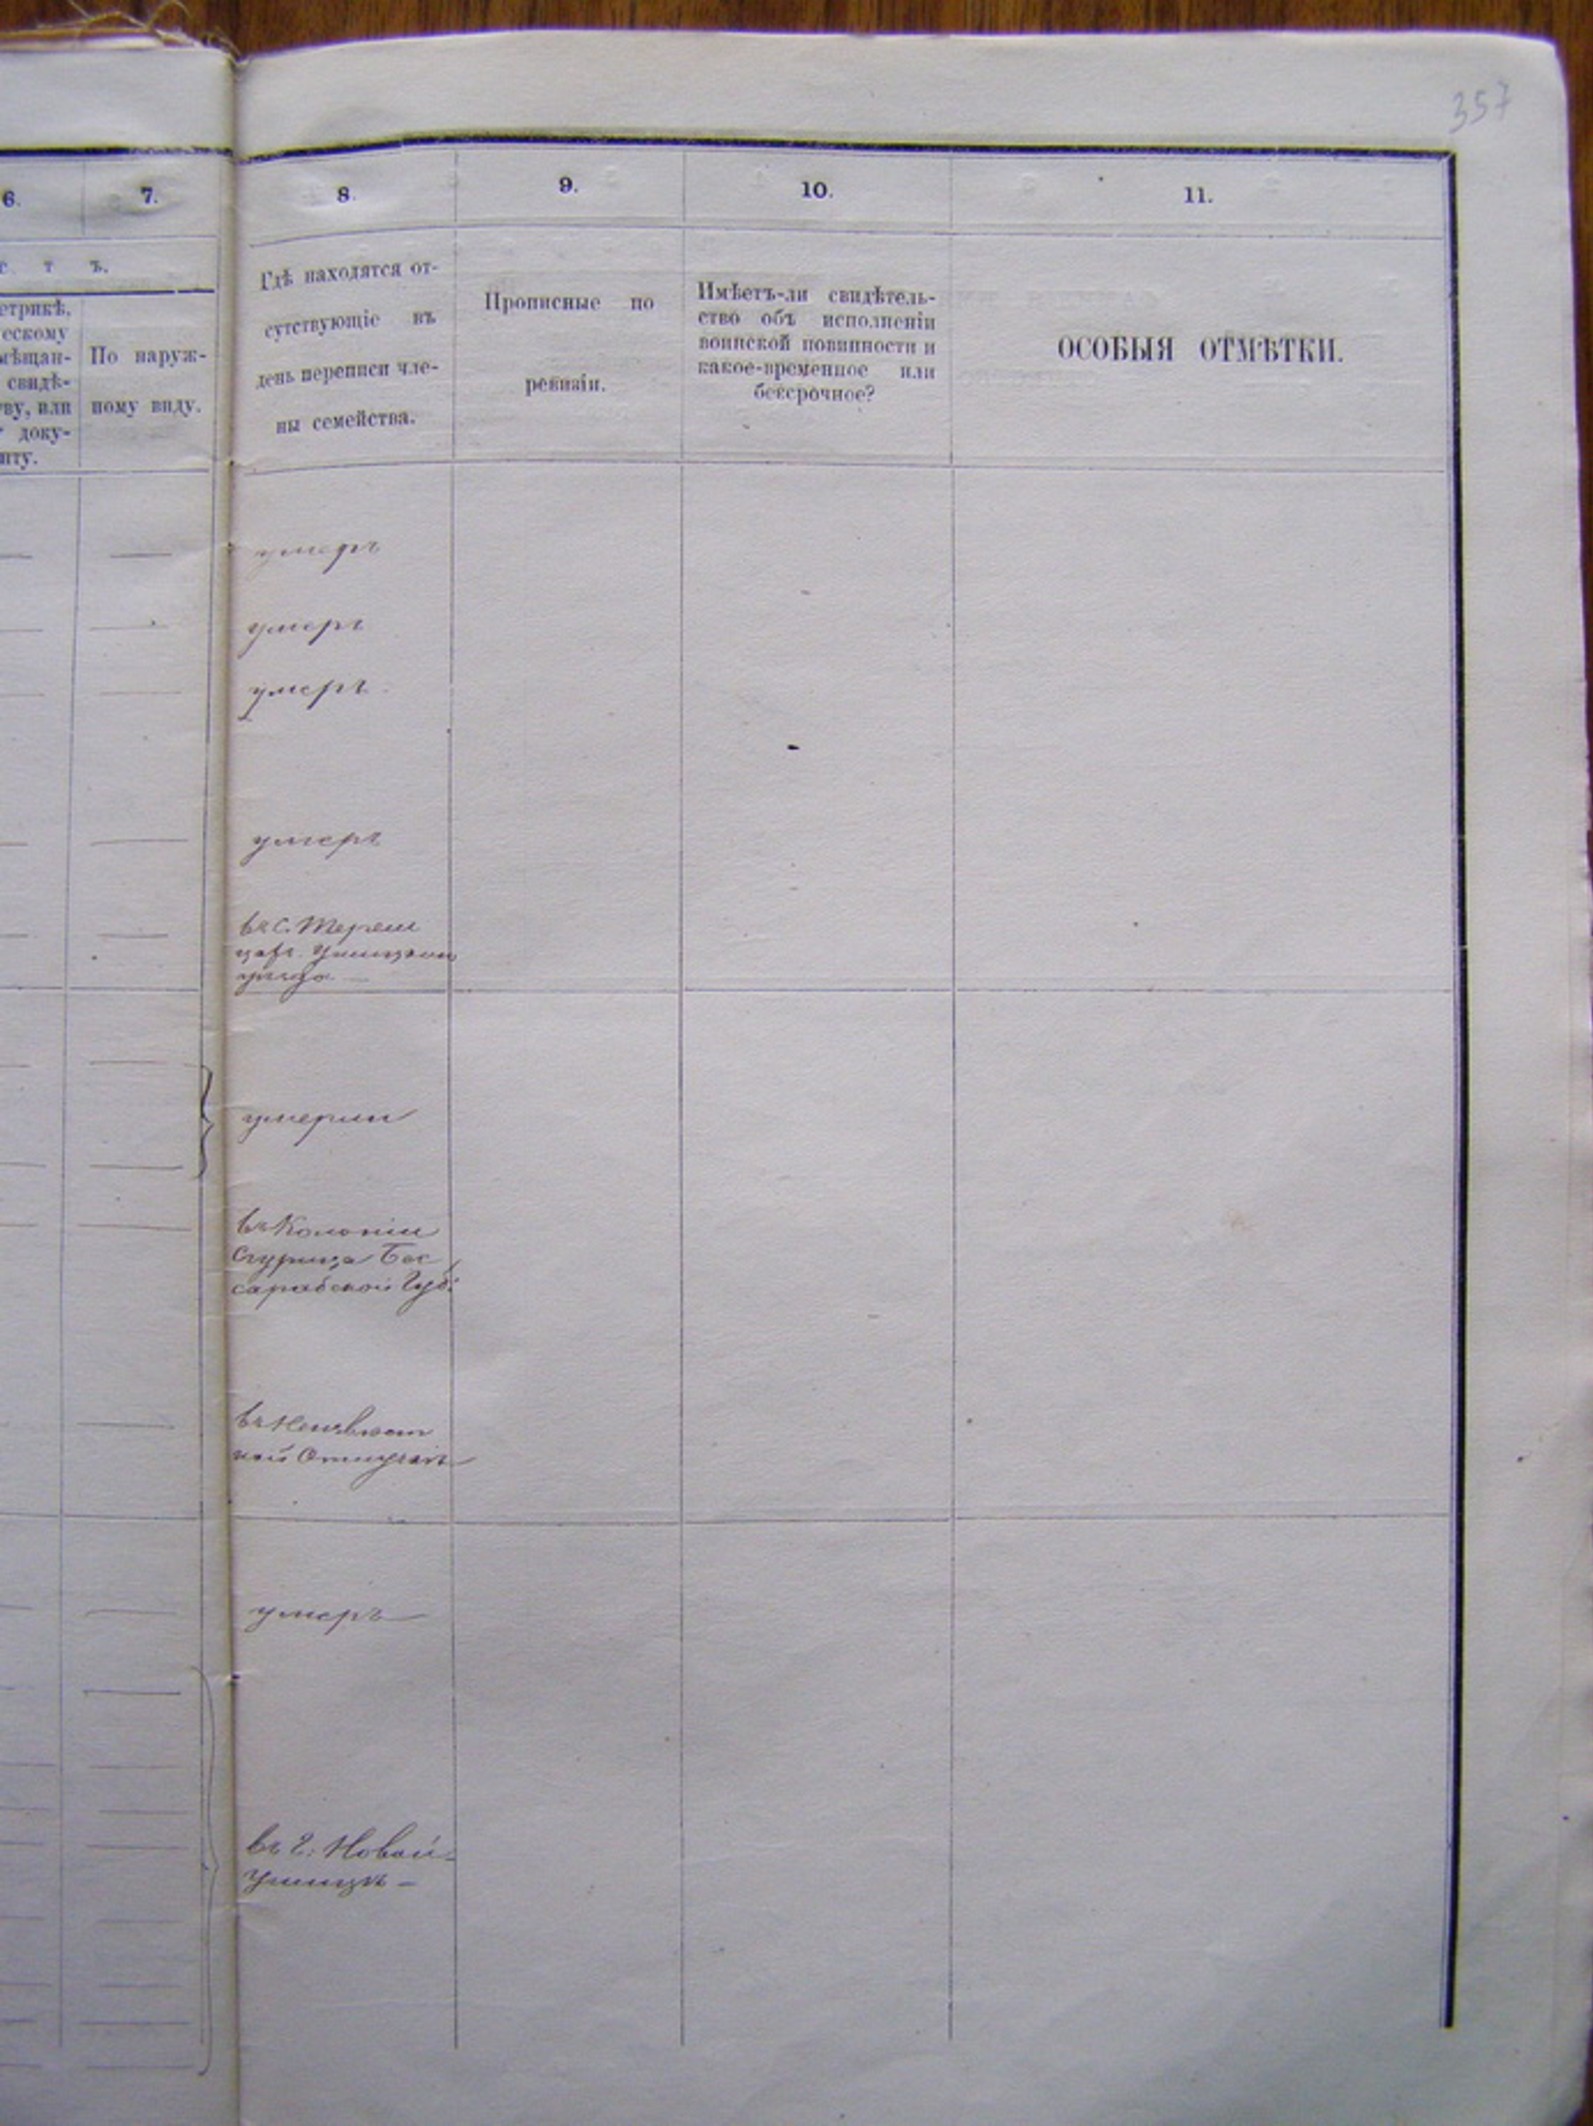 357
6.
7.
8.
9.
10.
11.
с т ъ.
етрикѣ,
сескому
мѣщан-
свидѣ-
ву, или
доку-
нту.
По наруж-
ному виду.
Гдѣ находятся от-
сутствующіе въ
день переписи чле-
ны семейства.
Прописные по
ревизіи.
Имѣетъ-ли свидѣтель-
ство объ исполненіи
воинской повинности и
какое-временное или
бессрочное?
ОСОБЫЯ ОТМѢТКИ.
умеръ
умеръ
умеръ
умеръ
въ С. Тереш
Ушицкаго
уѣзда
умерли
въ Колоніи
Згурица Бес
сарабской Губ:
въ Неизвѣст
ной Отлучкѣ
умеръ
въ г: Новой-
Ушицѣ